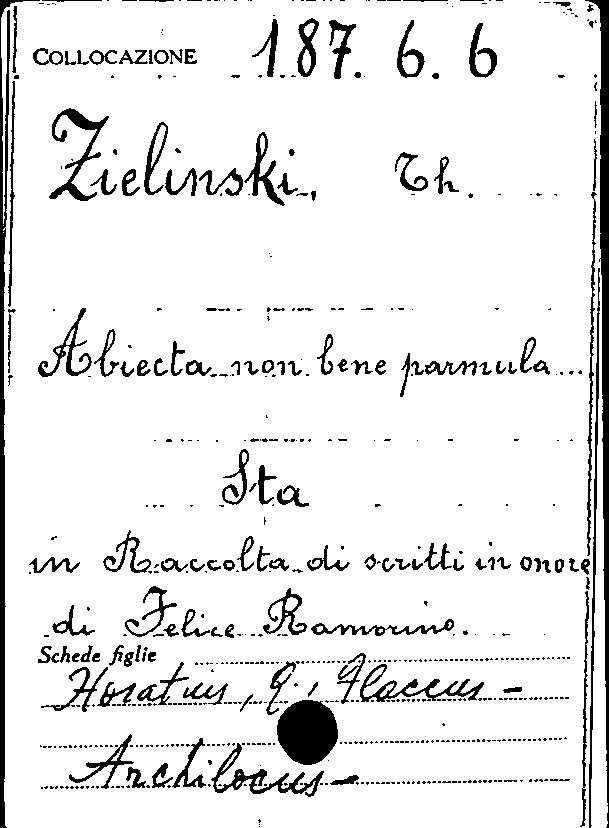 COLLOCAZIONE 187. 6. 6
Zielinski, Th.
Abiecta non bene parmula...
Sta
in Raccolta di scritti in onore
di Felice Ramorino.
Schede figlie
Horatius, Q., Flaccus -
Archilocus -